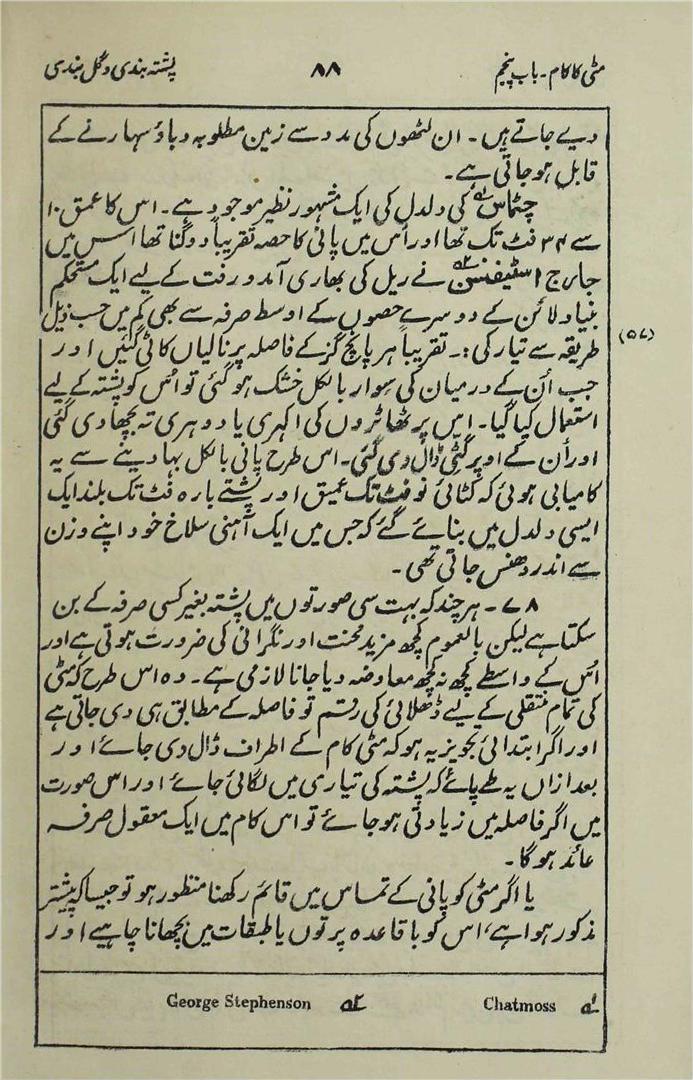 مٹی کا کام۔ باب پنجم ۸۸ پشتہ بندی و گل بندی
دیے جاتے ہیں۔ ان لٹھوں کی مدد سے زمین مطلوبہ دباؤ سہارنے کے
قابل ہو جاتی ہے۔
چٹماس لہ کی دلدل کی ایک مشہور نظیر موجود ہے۔ اس کا عمق ۱۰
سے ۳۴ فٹ تک تھا اور اُس میں پانی کا حصہ تقریباً دوگنا تھا اس میں
جارج اسٹیفنسن ٢ہ نے ریل کی بھاری آمد و رفت کے لیے ایک مستحکم
بنیاد لائن کے دوسرے حصوں کے اوسط صرفہ سے بھی کم میں حسب ذیل
(۵۷)
طریقہ سے تیار کی :۔ تقریباً ہر پانچ گز کے فاصلہ پر نالیاں کاٹی گئیں اور
جب اُن کے درمیان کی سِوار بالکل خشک ہو گئی تو اُس کو پشتہ کے لیے
استعمال کیا گیا۔ اِس پر ٹھاٹروں کی اکہری یا دوہری تہ بچھا دی گئی
اور اُن کے اوپر گٹی ڈال دی گئی۔ اس طرح پانی بالکل بہا دینے سے یہ
کامیابی ہوئی کہ کٹائی نو فٹ تک عمیق اور پشتے بارہ فٹ تک بلند ایک
ایسی دلدل میں بنائے گئے کہ جس میں ایک آہنی سلاخ خود اپنے وزن
سے اندر دھنس جاتی تھی۔
۷۸۔ ہر چند کہ بہت سی صورتوں میں پشتہ بغیر کسی صرفہ کے بن
سکتا ہے لیکن بالعموم کچھ مزید محنت اور نگرانی کی ضرورت ہوتی ہے اور
اُس کے واسطے کچھ نہ کچھ معاوضہ دیا جانا لازمی ہے۔ وہ اس طرح کہ مٹی
کی تمام منتقلی کے لیے ڈھلائی کی رقم تو فاصلہ کے مطابق ہی دی جاتی ہے
اور اگر ابتدائی تجویز یہ ہو کہ مٹی کام کے اطراف ڈال دی جائے اور
بعد ازاں یہ طے پائے کہ پشتہ کی تیاری میں لگائی جائے اور اس صورت
میں اگر فاصلہ میں زیادتی ہو جائے تو اس کام میں ایک معقول صرفہ
عائد ہوگا۔
یا اگر مٹی کو پانی کے تماس میں قائم رکھنا منظور ہو تو جیسا کہ پیشتر
مذکور ہوا ہے، اس کو باقاعدہ پرتوں یا طبقات میں بچھانا چاہیے اور
لہ Chatmoss ٢ہ George Stephenson